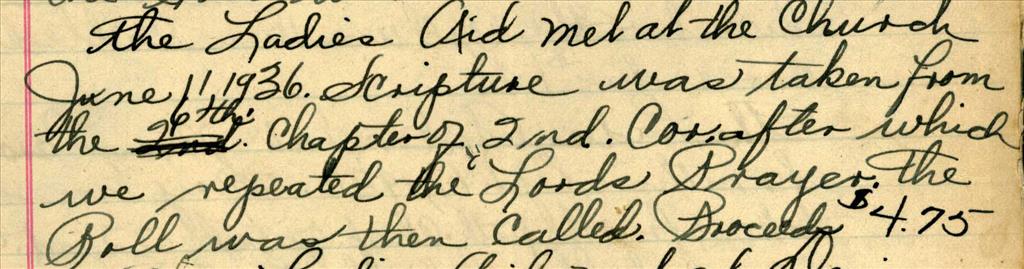 the Ladies Aid met at the Church
June 11 1936. Scripture was taken from
the 6th. Chapter of 2nd. Cor. after which
we repeated the Lords Prayer. The
Roll was then Called. Proceeds $4.75